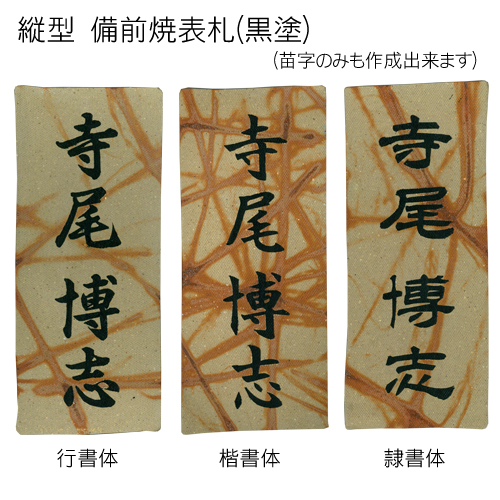 縦型 備前焼表札(黒塗)
(苗字のみも作成出来ます)
寺尾博志
寺尾博志
寺尾博志
行書体
楷書体
隷書体